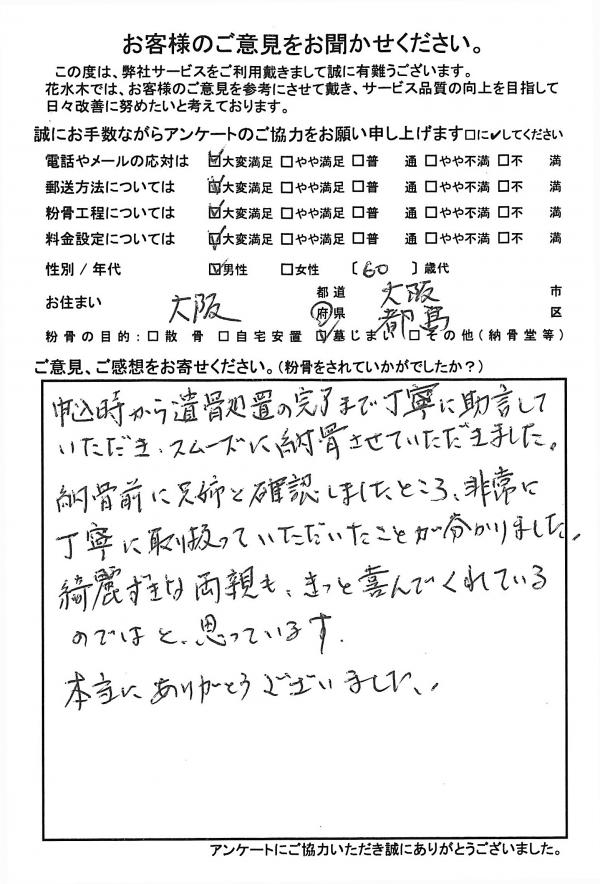 お客様のご意見をお聞かせください。
この度は、弊社サービスをご利用戴きまして誠に有難うございます。
花水木では、お客様のご意見を参考にさせて戴き、サービス品質の向上を目指して
日々改善に努めたいと考えております。
誠にお手数ながらアンケートのご協力をお願い申し上げます□に✔してください
電話やメールの応対は ☑大変満足 □やや満足 □普 通 □やや不満 □不 満
郵送方法については ☑大変満足 □やや満足 □普 通 □やや不満 □不 満
粉骨工程については ☑大変満足 □やや満足 □普 通 □やや不満 □不 満
料金設定については ☑大変満足 □やや満足 □普 通 □やや不満 □不 満
性別/年代 ☑男性 □女性 〔60〕歳代
お住まい 大阪 都道府県 大阪 市 都島 区
粉骨の目的:□散 骨 □自宅安置 ☑墓じまい □その他(納骨堂等)
ご意見、ご感想をお寄せください。(粉骨をされていかがでしたか?)
申込時から遺骨処置の完了まで丁寧に助言して
いただき、スムーズに納骨させていただきました。
納骨前に兄姉と確認しましたところ、非常に
丁寧に取り扱っていただいたことが分かりました。
綺麗ずきな両親も、きっと喜んでくれている
のではと、思っています.
本当にありがとうございました。
アンケートにご協力いただき誠にありがとうございました。